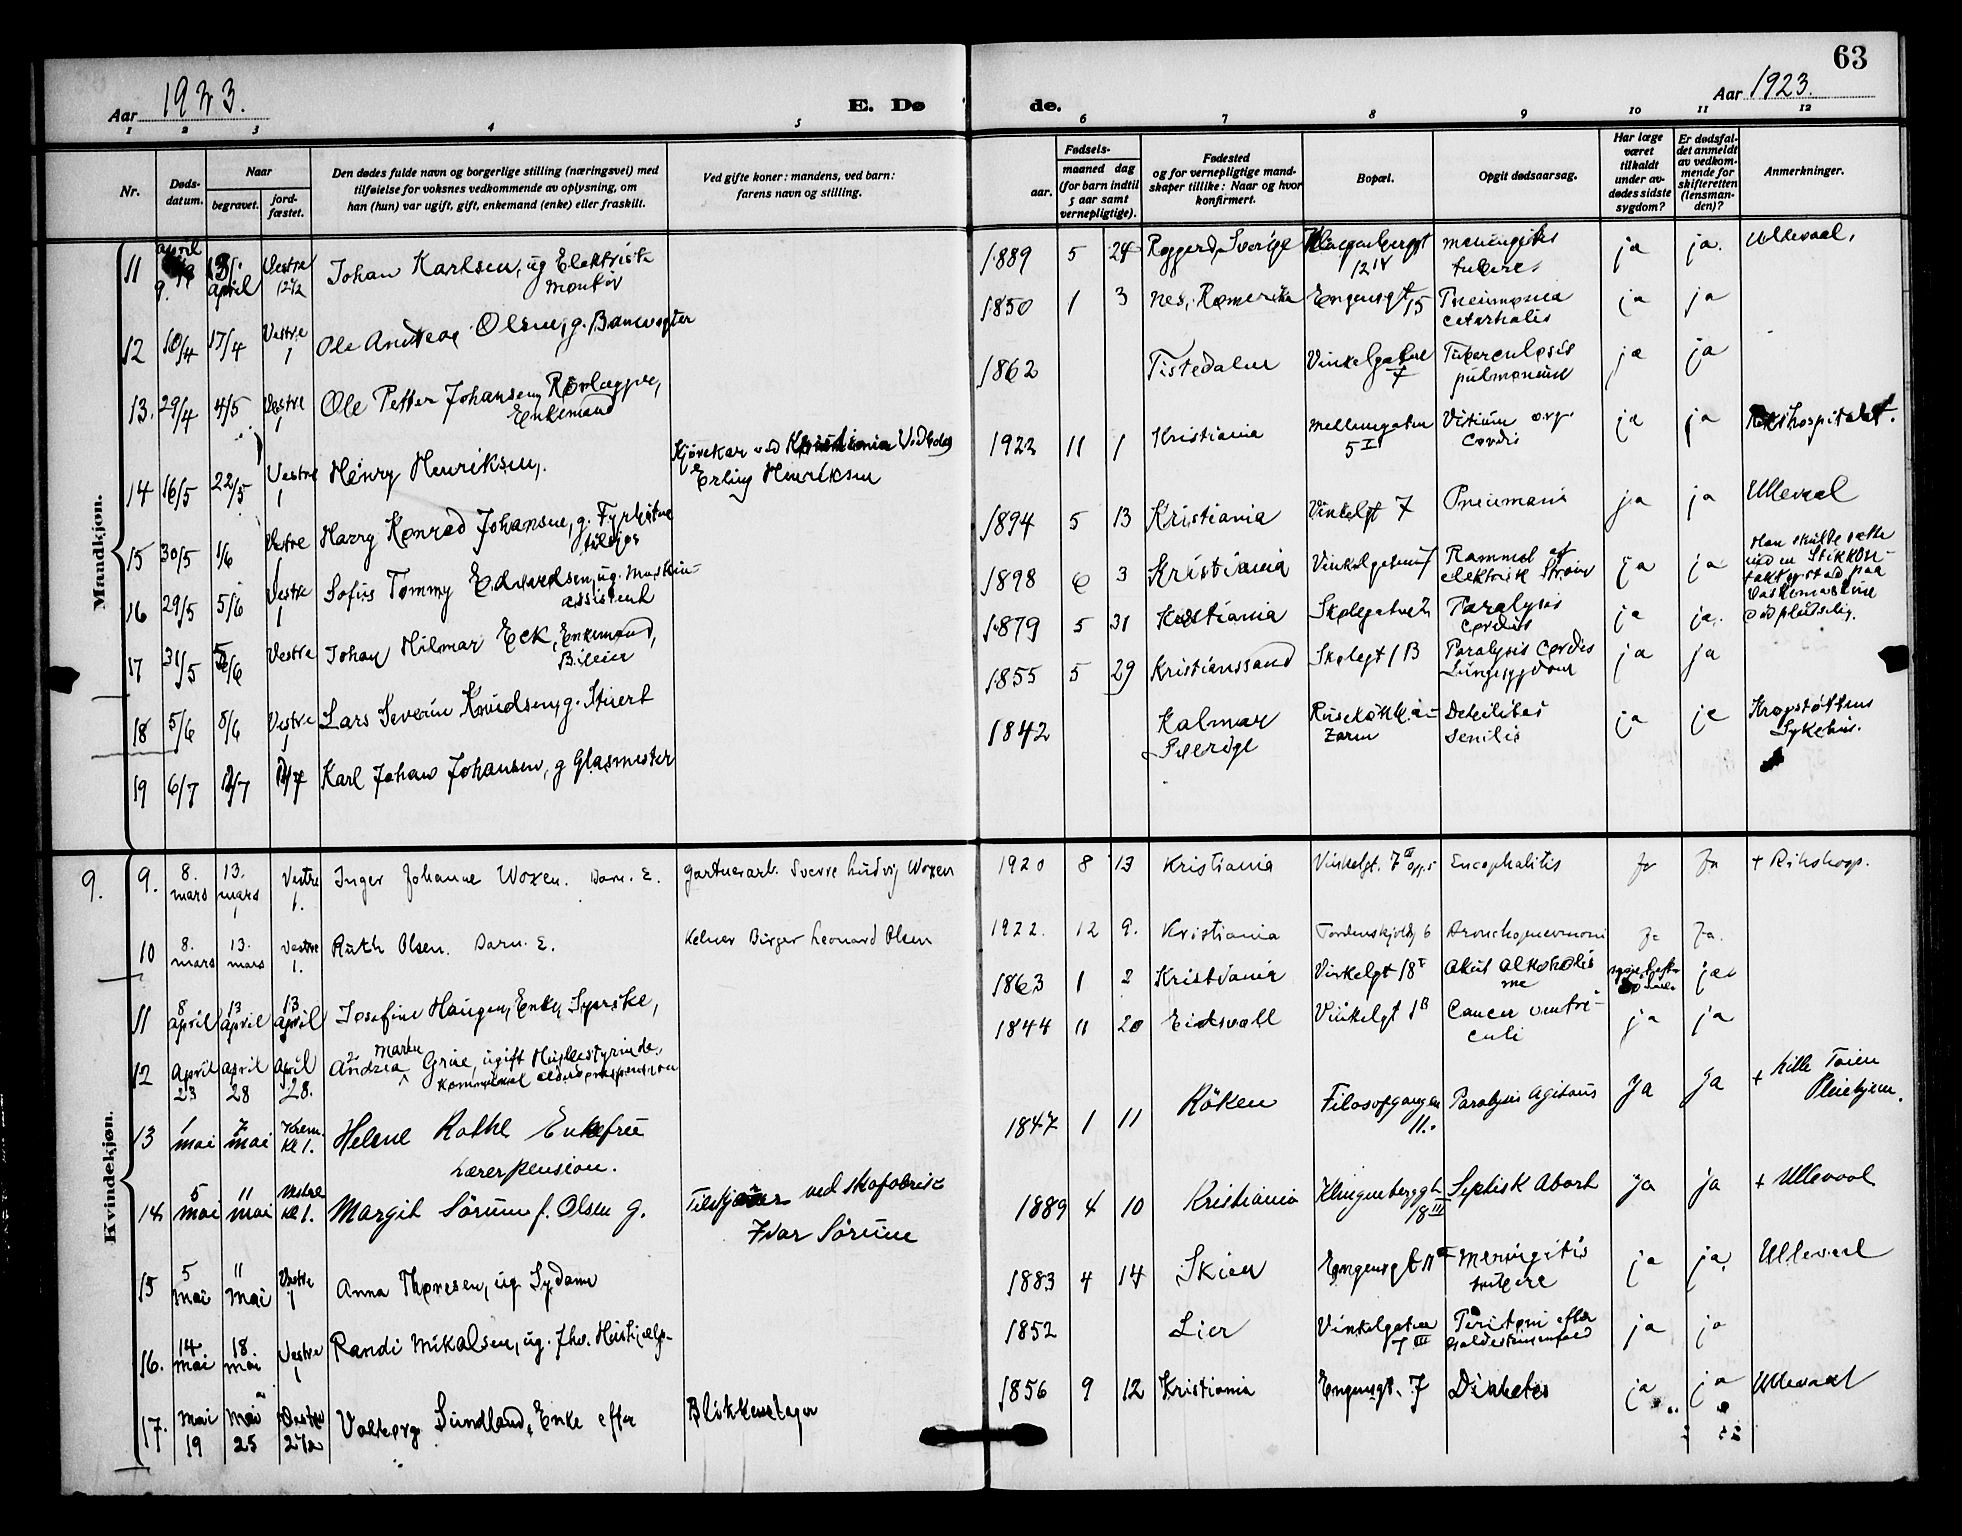 63
Aar 1923.
E. Dø de.
Aar 1923.
1 2 3 4 5 6 7 8 9 10 11 12
Nr.
Døds-
datum.
Naar
begravet.
jord-
fæstet.
Den dødes fulde navn og borgerlige stilling (næringsvei) med
tilføielse for voksnes vedkommende av oplysning, om
han (hun) var ugift, gift, enkemand (enke) eller fraskilt.
Ved gifte koner: mandens, ved barn:
farens navn og stilling.
Fødsels-
aar.
maaned dag
(for barn indtil
5 aar samt
vernepligtige).
Fødested
og for vernepligtige mand-
skaper tillike: Naar og hvor
konfirmert.
Bopæl.
Opgit dødsaarsag.
Har læge
været
tilkaldt
under av-
dødes sidste
sygdom?
Er dødsfal-
det anmeldt
av vedkom-
mende for
skifteretten
(lensman-
den)?
Anmerkninger.
Mandkjøn.
11 april 9. 13. april Vestre 12½ Johan Karlsen, ug Elektrisk
Montør
1889 5 24 Sverige 12 IV meningitis
tuberc. ja ja. Ullevaal.
12 10/4 17/4 Vestre 1 Ole Andreas Olsen, g. Banevogter
1850 1 3 Nes, Romerike Engensgt 15 Pneumonia
catarhalis ja ja
13. 29/4 4/5 Vestre 1 Ole Petter Johansen, Rørlægger,
Enkemand
1862 Tistedalen Vinkelgaten 7 Tuberculosis
pulmonum ja ja
14 16/5 22/5 Vestre 1 Henry Henriksen,
Kjørekar ved Kristiania
Erling Henriksen
1922 11 1 Kristiania Mellemgaten
5 I Vitium org.
Cordis ja ja Rikshospitalet.
15 30/5 1/6 Vestre 1 Harry Konrad Johansen, g. Fyrbøter
1894 5 13 Kristiania Vinkelgt 7 Pneumoni ja ja Ullevaal
16 29/5 5/6 Vestre 1 Sofus Tommy Edvardsen, ug. Maskin-
assistent
1898 6 3 Kristiania Vinkelgaten 7 Rammet af
elektrisk Strøm ja ja Han skulde sætte
ind en Stikkon-
takt paa
Vaskemaskine
17 31/5 5/6 Vestre Johan Hilmar Eck, Enkemand,
1879 5 31 Kristiania Skolegaten 2 Paralysis
Cordis ja ja. død pludselig.
18 5/6 8/6 Vestre 1 Lars Severin Knudsen, g. Stuert
1855 5 29 Kristianssand Skolegt 1 B Paralysis Cordis
Lungesygdom ja ja
19 6/7 12/7 Karl Johan Johansen, g Glasmester
1842 Kalmar
Sverige Debilitas
senilis ja ja
Sykehus.
Kvindekjøn.
9. 9. 8. mars 13. mars Vestre 1. Inger Johanne Woxen. Barn. E. Gartnerarb. Sverre Ludvig Woxen
1920 8 13 Kristiania Vinkelgt. 7 Encephalitis Ja Ja + Rikshosp.
10 8. mars 13. mars Vestre 1. Ruth Olsen. Barn. E. Kelner Birger Leonard Olsen
1922. 12 9. Kristiania Tordenskjoldg 6 Bronchopneumoni Ja Ja.
11 8 april 13 april 13 april Josefine Haugen, Enke, Syerske,
1863 1 2 Kristiania Vinkelgt 18 Akut alkoholis
me ja
12 april 23 april 28 april 28. Andrea Marte Grue, ugift Husbestyrinde.
Kommunal alderdomspension
1844 11 20 Eidsvoll Vinkelgt 1 B Cancer ventri-
culi ja ja
13 1 mai 7 mai Krem. Kl 1. Helene Rothe Enkefrue
Lærerpension.
1847 1 11 Röken Filosofgangen
11. Paralysis Agitans Ja Ja + Lille Tøien
Pleiehjem.
14 5 mai 11 mai Vestre Kl 1. Margit Sörum f. Olsen g. Tilskjærer ved skofabrik
Ivar Sörum
1889 4 10 Kristiania Klingenberggt
18 III Septisk Abort Ja ja + Ullevaal
15 5 mai 11 mai Vestre 1 Anna Thoresen, ug Sydame
1883 4 14 Skien Engensgt 11 Meningitis
ja ja. Ullevaal
16. 14 mai 18. mai Vestre 1 Randi Mikalsen, ug. fhv. Hushjælp-
1852 Lier Vinkelgaten
7 III Peritoni efter
ja ja
17. mai 19 mai 25 Vestre 2½ Valborg Sundland, Enke efter Blikkenslager
1856 9 12 Kristiania Engensgt. 7 Diabetes ja ja Ullevaal